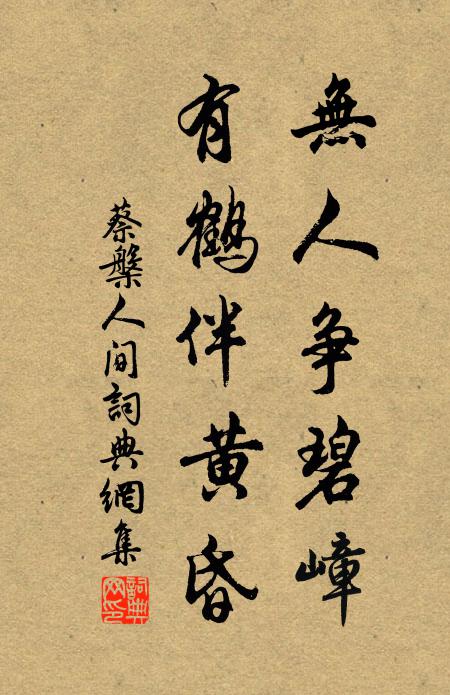 無人争碧嶂
有鶴伴黄昏
蔡槃人间詞典網集
詞典
网印